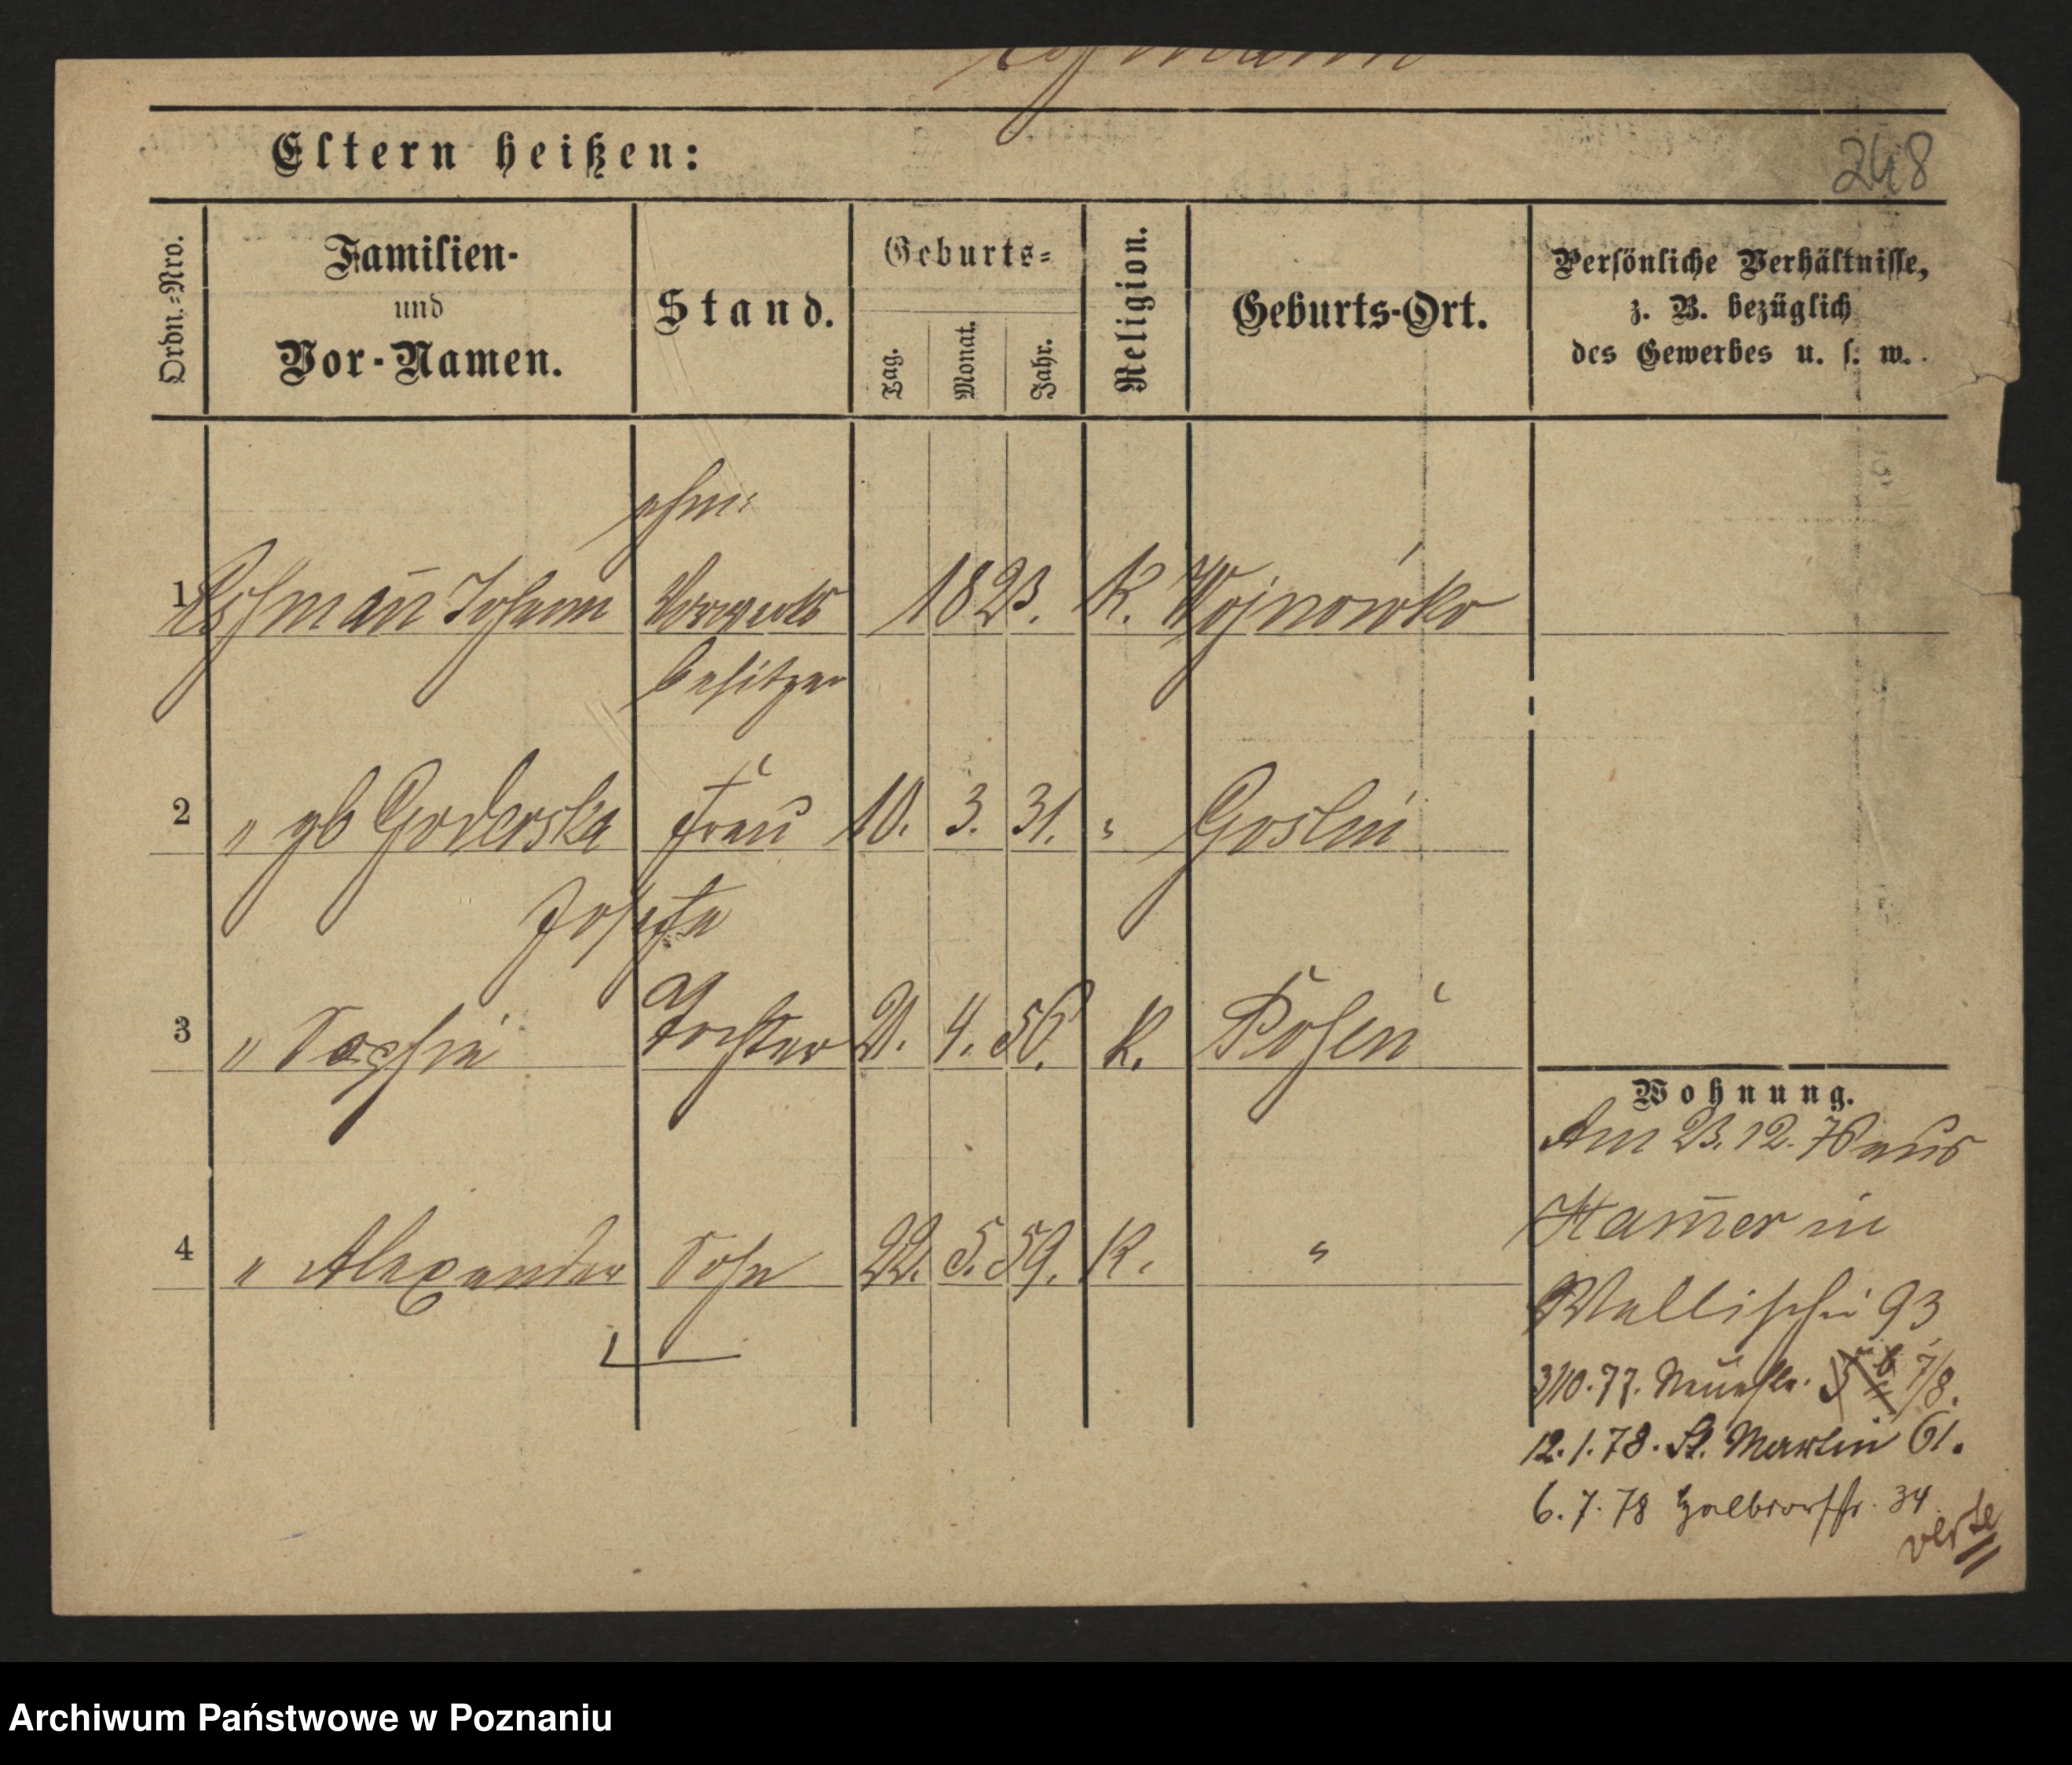 Eltern heißen:
248
Ordn.-Nro.
Familien-
und
Vor-Namen.
Stand.
Geburts-
Tag.
Monat.
Jahr.
Religion.
Geburts-Ort.
Persönliche Verhältnisse,
z. B. bezüglich
des Gewerbes u. s. w.
ehm.
1 Johann Vorwerks 1823. K. Wojnowko
besitzer
2 " gb Goderska Frau 10. 3. 31. " Goslin
Josefa
3 " Sophie Tochter 21. 4. 56. K. Posen
4 " Alexander Sohn 22. 5. 59. K. "
Wohnung.
Am 23. 12. 76 aus
Ham̄er in
Wallischei 93
3/10. 77. 7/8.
12. 1. 78. St. Martin 61.
6. 7. 78 Halbdorfstr. 34
verte
Archiwum Państwowe w Poznaniu